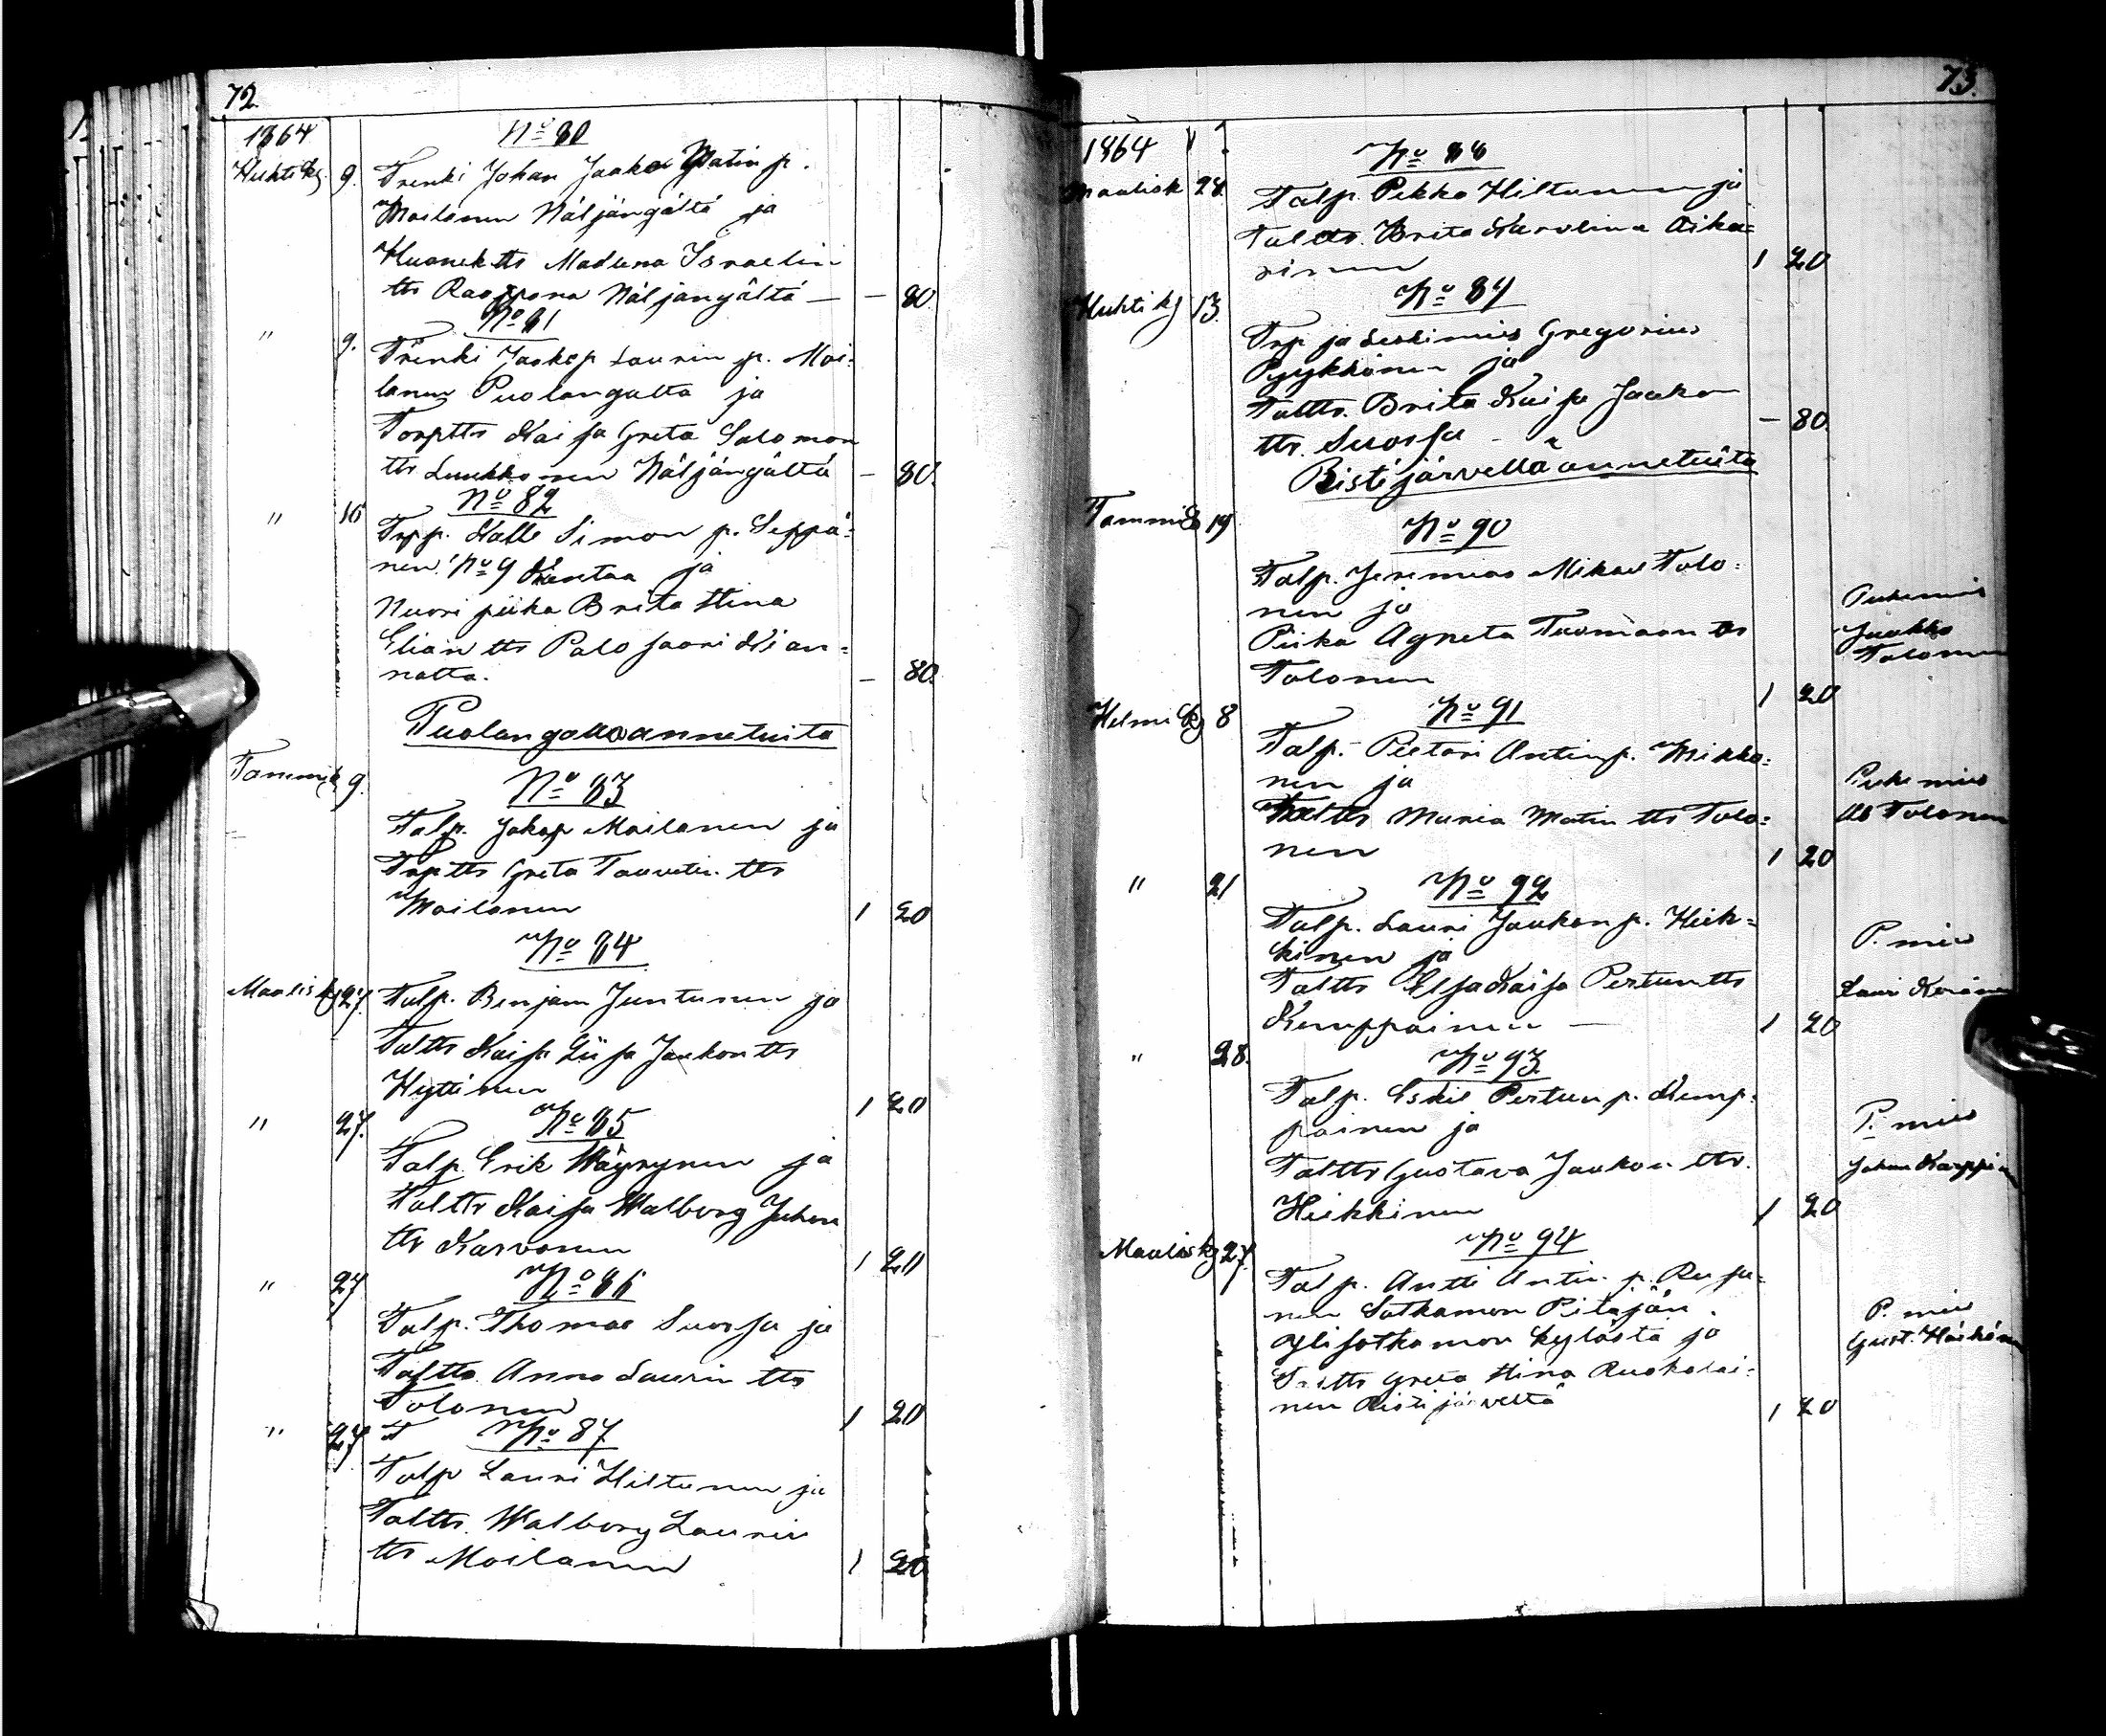 72.
1864 No 80
Huhtikj 9. Trenki Johan Jaakon Matin p.
Moilanen Näljängältä ja
Huonek tts Madlena Israelin
tts Raappana Näljängältä — — 80.
No 81
" 9. Trenki Jaakop Laurin p. Moi=
lanen Puolangalta ja
Torptts Kaisa Greta Salomon
tts Luukkonen Näljängältä — 80.
No 82
" 16 Trp p. Kalle Simon p. Seppä=
nen No 9 Kiantaa ja
Nuori piika Brita Stina
Elian tts Palosaari Kian=
nalta. — 80.
Puolangalla annetuita
Tammik 9. No 83
Talp. Jakop Moilanen ja
Trptts Greta Taavetin tts
Moilanen 1 20
No 84
Maaliskj 27. Talp. Benjam Juntunen ja
Taltts Kaisa Liisa Jaakon tts
Hyttinen 1 20
" 27. No 85
Talp. Erik Wäyrynen ja
Taltts Kaisa Walborg Juhon
tts Karvonen 1 20
" 27 No 86
Talp. Thomas Suorsa ja
Taltts Anna Laurin tts
Tolonen 1 20
" 27 No 87
Talp Lauri Hiltunen ja
Taltts. Walborg Laurin
tts Moilanen 1 20
73.
1864 No 88
Maalisk 28. Talp. Pekka Hiltunen ja
Taltts. Brita Karolina Aika=
rinen 1 20
Huhtikj 13. No 89
Trp ja Leskimies Gregorius
Pyykkönen ja
Taltts. Brita Kaisa Jaakon
tts. Suorsa — 80.
Ristijärvellä annetuita
Tammik 19 No 90
Talp. Jeremias Mikael Tolo=
nen ja
Piika Agneta Tuomaan tts
Tolonen 1 20
Puhemies
Jaakko
Tolonen
Helmikj 8 No 91
Talp. Pietari Antin p. Mikko=
nen ja
Taltts Maria Matin tts Tolo=
nen 1 20
Puhemies
Ab Tolonen
" 21 No 92
Talp. Lauri Jaakon p. Heik=
kinen ja
Taltts Elsa Kaisa Pertun tts
Kemppainen — 1 20
P. mies
Lauri Keränen
" 28. No 93.
Talp. Eskil Pertun p. Kemp=
painen ja
Taltts Gustava Jaakon tts.
Heikkinen 1 20
P. mies
Johan Karppinen
Maaliskj 27. No 94
Talp. Antti Antin p.
nen Sotkamon Pitäjän
Ylisotkamon kylästä ja
Taltts Greta Stina Ruokolai=
nen Ristijärveltä 1 20
P. mies
Gust.